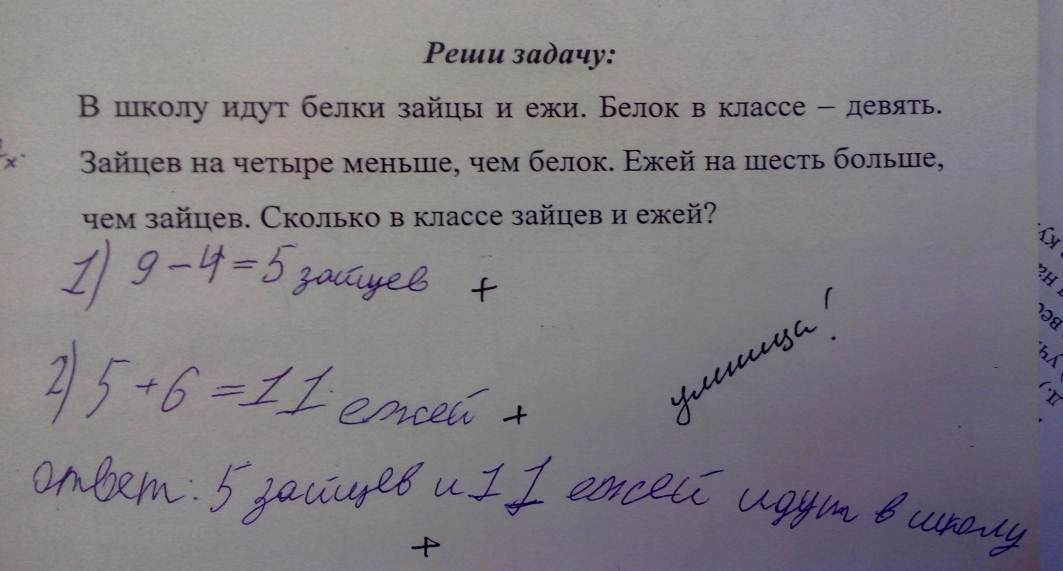 Реши задачу:
В школу идут белки зайцы и ежи. Белок в классе – девять.
Зайцев на четыре меньше, чем белок. Ежей на шесть больше,
чем зайцев. Сколько в классе зайцев и ежей?
1) 9 – 4 = 5 зайцев +
2) 5 + 6 = 11 ежей +
умница!
ответ: 5 зайцев и 11 ежей идут в школу
+